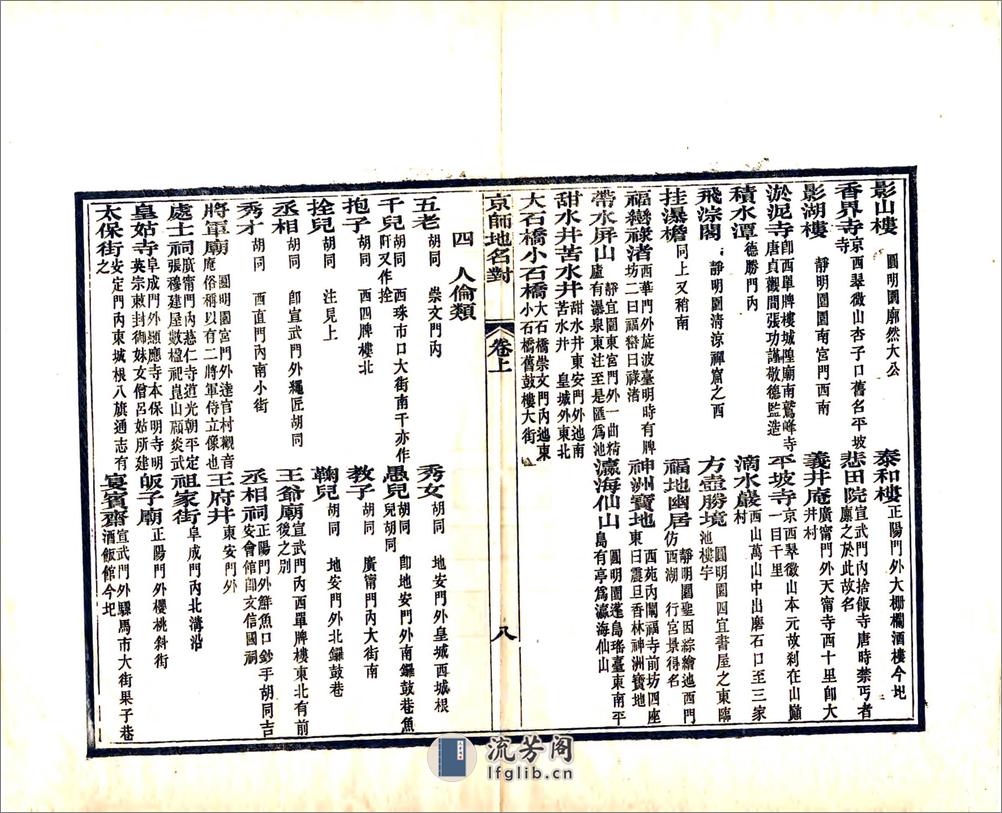 影山樓 圓明園廓然大公 泰和樓 正陽門外大柵欄酒樓今圯
香界寺 京西翠微山杏子口舊名平坡寺 悲田院 宣武門內捨飯寺唐時禁丐者廩之於此故名
影湖樓 靜明園南宮門西南 義井庵 廣甯門外天甯寺西十里卽大井村
淤泥寺 卽西單牌樓城隍廟南鷲峰寺唐貞觀間張功謹敬德監造 平坡寺 京西翠微山本元故刹在山巔一目千里
積水潭 德勝門內 滴水巖 西山萬山中出磨石口至三家村
飛淙閣 靜明園清涼禪窟之西 方壺勝境 圓明園四宜書屋之東臨池樓宇
挂瀑檐 同上又稍南 福地幽居 靜明園聖因綜繪迤西門仿西湖行宮景得名
福巒祿渚 西華門外旋波臺明時有牌坊二曰福巒曰祿渚 神洲寶地 西苑內闡福寺前坊四座東曰震旦香林神洲寶地
帶水屏山 靜宜園東宮門外一曲精廬有瀑泉東注至是匯為池 瀛海仙山 圓明園蓬島瑤臺東南平島有亭為瀛海仙山
甜水井苦水井 甜水井東安門外迤南苦水井皇城外東北
大石橋小石橋 大石橋崇文門內迤東小石橋舊鼓樓大街
京師地名對 卷上 八
四 人倫類
五老 胡同 崇文門內 秀女 胡同 地安門外皇城西城根
千兒 胡同 西珠市口大街南千亦作阡又作拴 愚兒 胡同 卽地安門外南鑼鼓巷魚兒胡同
抱子 胡同 西四牌樓北 教子 胡同 廣甯門內大街南
拴兒 胡同 注見上 鞠兒 胡同 地安門外北鑼鼓巷
丞相 胡同 卽宣武門外繩匠胡同 王爺廟 宣武門內西單牌樓東北有前後之別
秀才 胡同 西直門內南小街 丞相祠 正陽門外鮮魚口鈔手胡同吉安會館卽文信國祠
將軍廟 圓明園宮門外達官村觀音庵俗稱以有二將軍侍立像也 王府井 東安門外
處士祠 廣甯門內慈仁寺道光朝平定張穆建屋數楹祀崑山顧炎武 祖家街 阜成門內北溝沿
皇姑寺 阜成門外顯應寺本保明寺明英宗敕封御妹女僧呂姑所建 皈子廟 正陽門外櫻桃斜街
太保街 安定門內東城根八旗通志有之 宴賓齋 宣武門外騾馬市大街果子巷酒飯館今圯
流芳阁
lfglib.cn